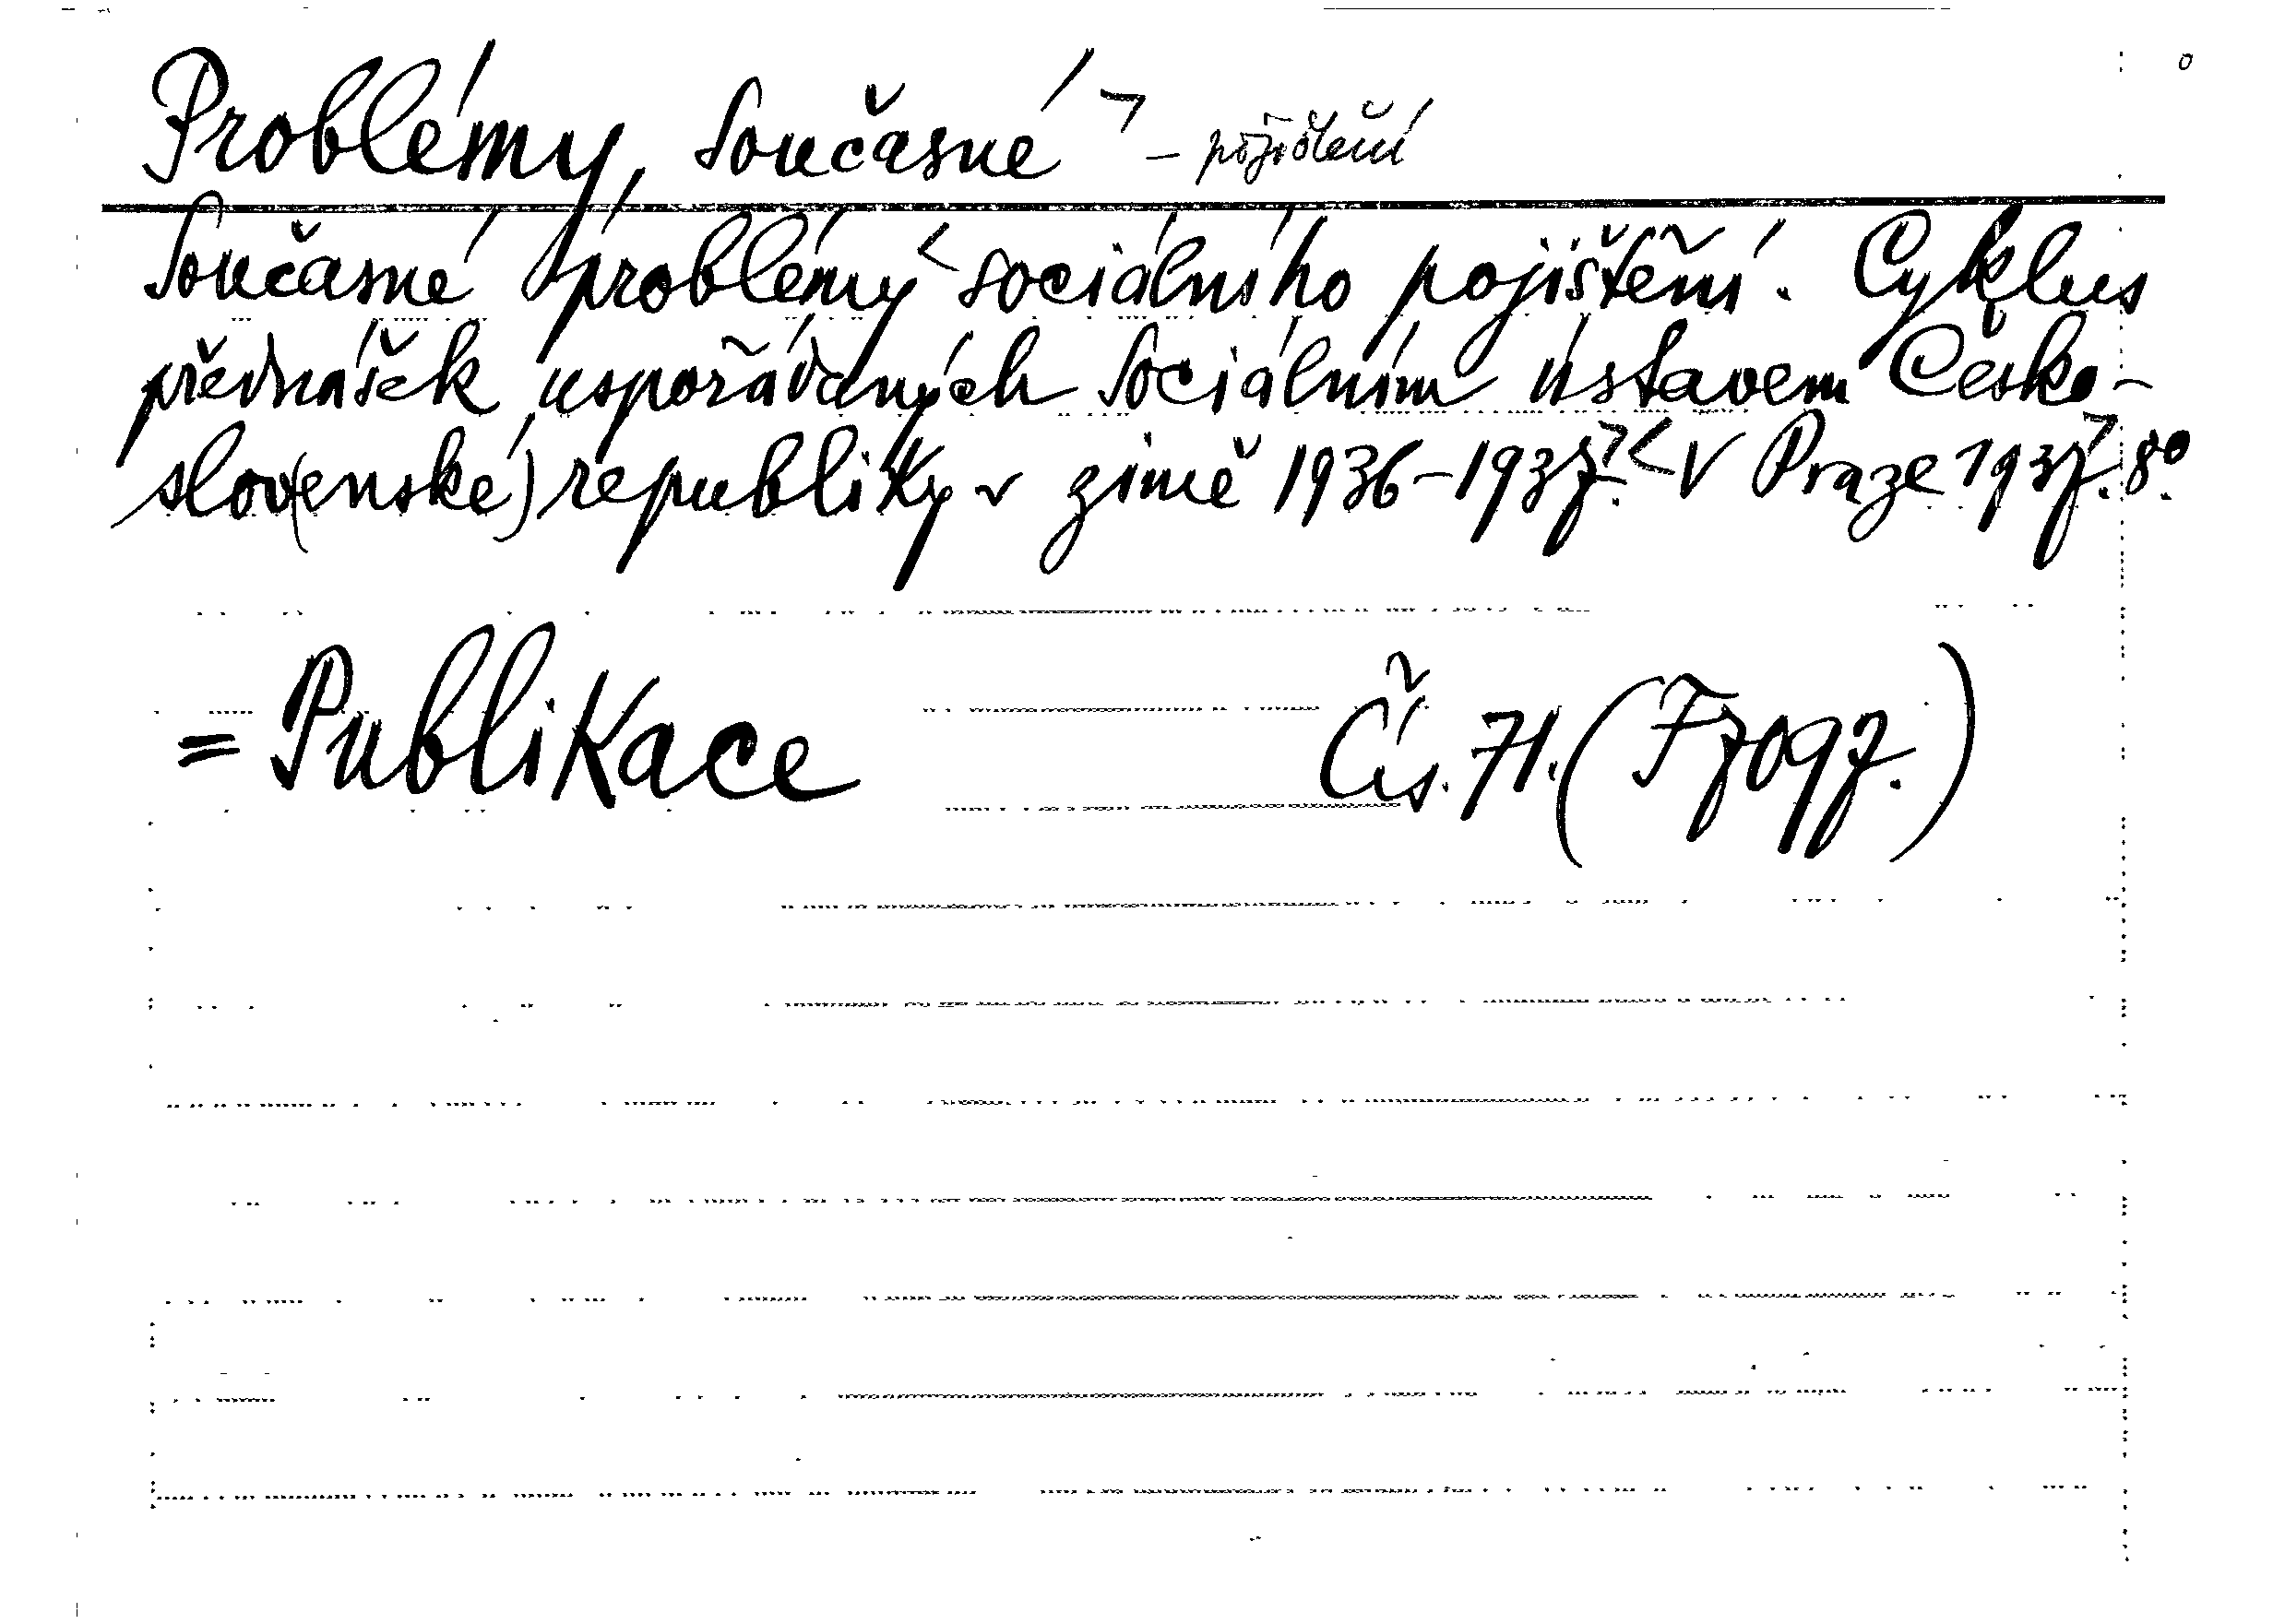 Problémy, současné - pojištění
Současné problémy sociálního pojištění. Cyklus
přednášek uspořádaných Sociálním ústavem Česko-
slov(enské) republiky v zimě 1936-1937. V Praze 1937. 8°.
= Publikace Čís. 71. (F 7097.)